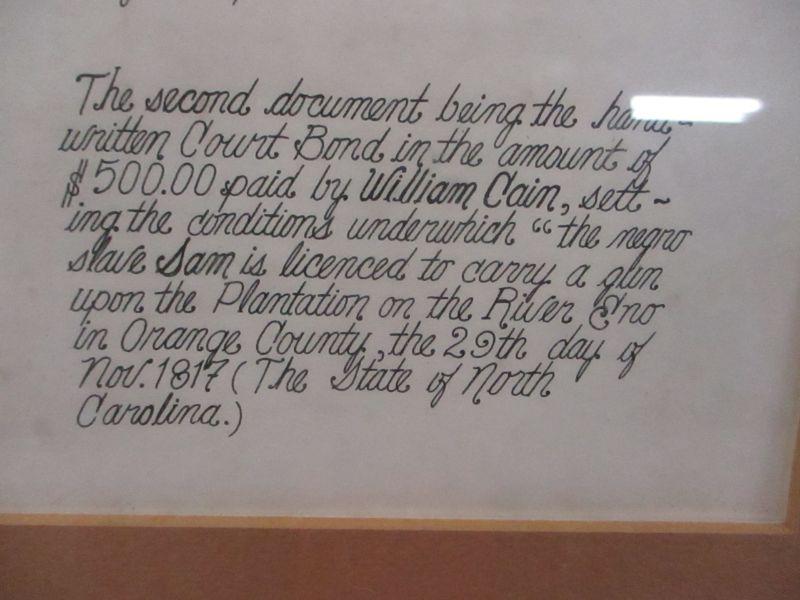 The second document being the hand-
written Court Bond in the amount of
$500.00 paid by William Cain, sett-
ing the conditions underwhich “the negro
slave Sam is licenced to carry a gun
upon the Plantation on the River Eno
in Orange County, the 29th day of
Nov. 1817 (The State of North
Carolina.)